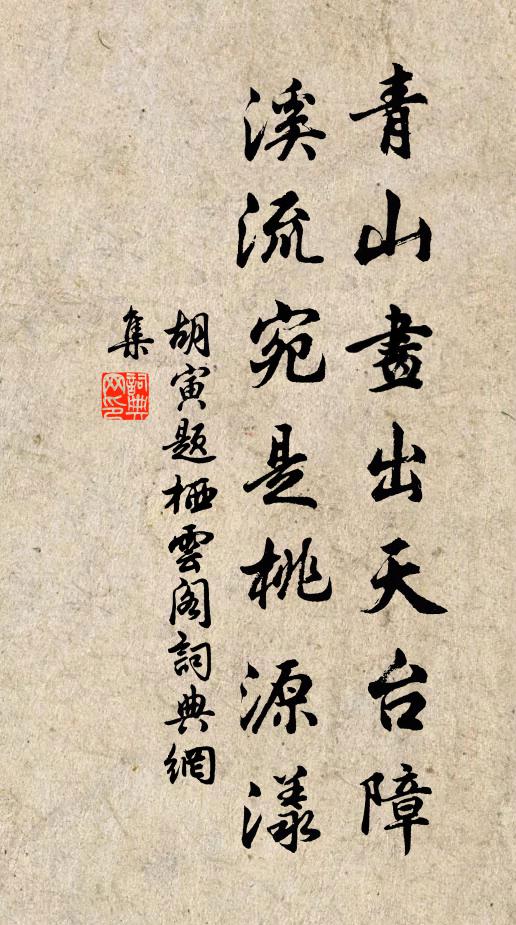 青山畫出天台障
溪流宛是桃源漾
胡寅題栖雲閣詞典網
集
詞典
网印